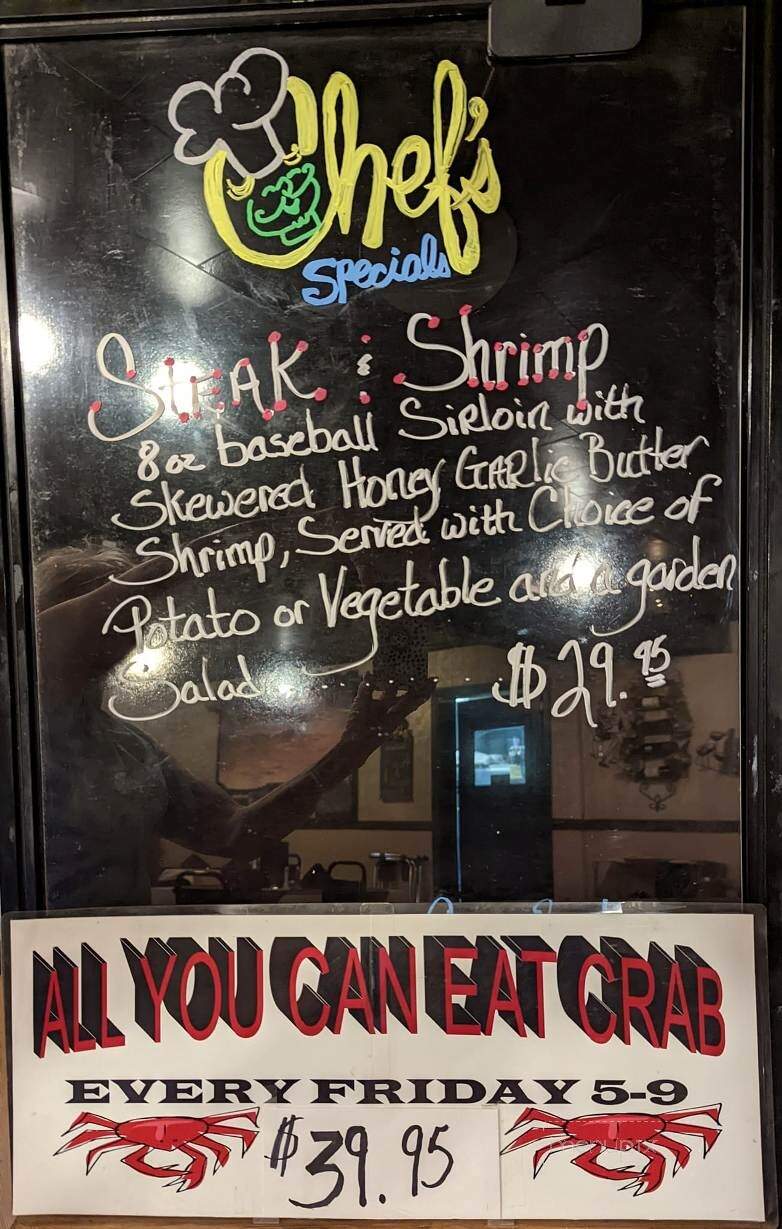 Chef's
Specials
Steak & Shrimp
8oz baseball Sirloin with
Skewered Honey Garlic Butter
Shrimp, Served with Choice of
Potato or Vegetable and a garden
Salad . . . . . . . $29.95
ALL YOU CAN EAT CRAB
EVERY FRIDAY 5-9
$39.95